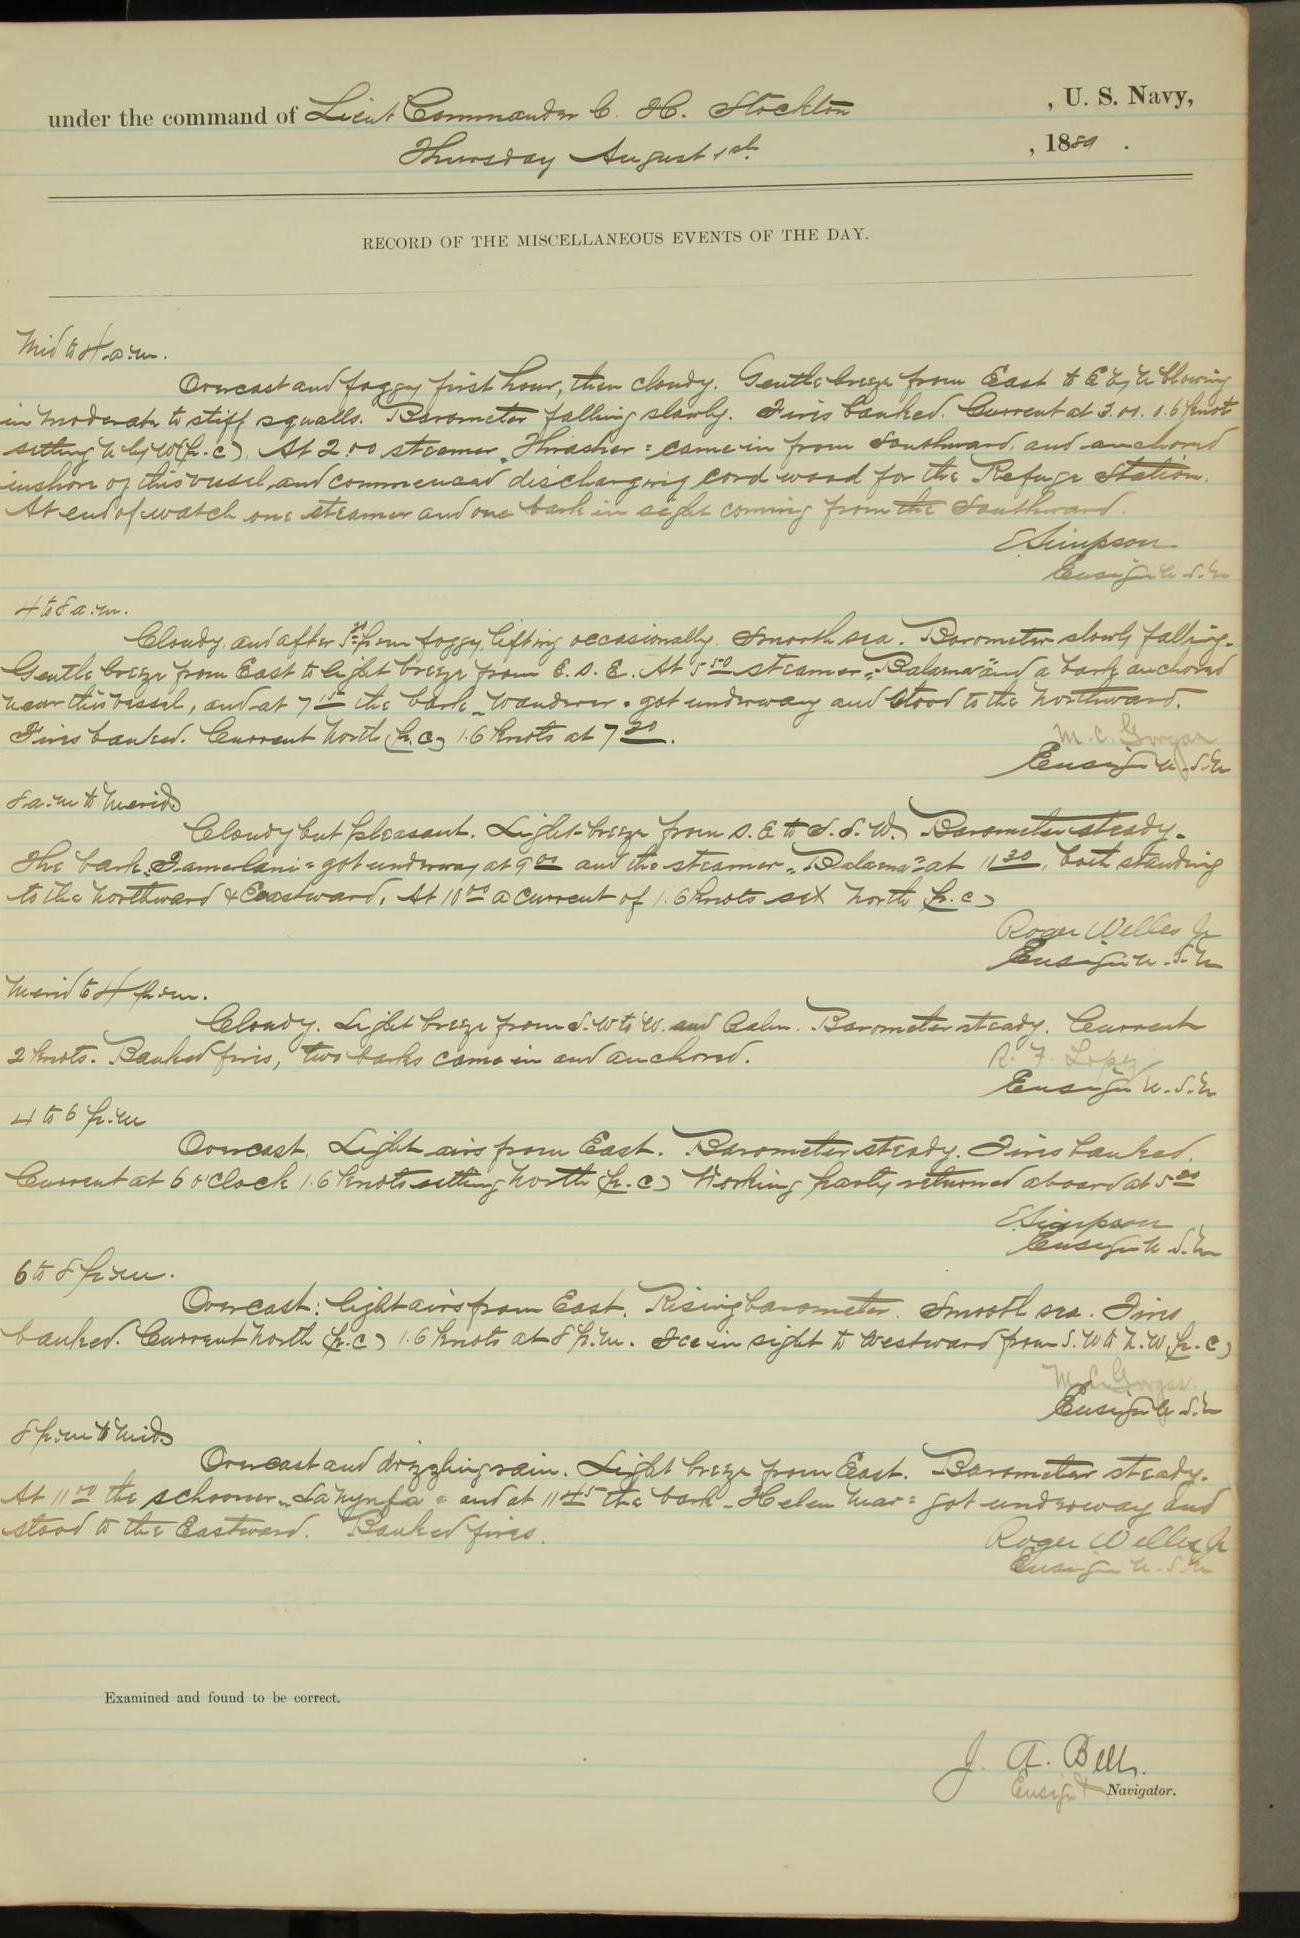 under the command of Lieut Commander C. H. Stockton , U. S. Navy,
Thursday August 1st , 1889 .
RECORD OF THE MISCELLANEOUS EVENTS OF THE DAY.
Mid to 4 a.m.
Overcast and foggy first hour, then cloudy. Gentle breeze from East to E by N blowing
in moderate to stiff squalls. Barometer falling slowly. Fires banked. Current at 3.00. 0.6 knot
setting N by W (p.c). At 2.00 steamer "Thrasher" came in from Southward, and anchored
inshore of this vessel and commenced discharging cord wood for the Refuge Station.
At end of watch one steamer and one bark in sight coming from the Southward.
E Simpson
Ensign U.S.N
4 to 8 a.m.
Cloudy, and after from foggy, lifting occasionally. Smooth sea. Barometer slowly falling.
Gentle breeze from East to light breeze from E.S.E. At 5 50 steamer "Balaena" and a bark anchored
near this vessel, and at 7 15 the bark "Wanderer" got underway and stood to the Northward.
Fires banked. Current North (p.c) 1.6 knots at 7 30.
M. C. Gorgas
Ensign U.S.N
8 a.m to Merid
Cloudy but pleasant. Light breeze from S.E to S.S.W. Barometer steady.
The bark "Tamerlane" got underway at 9 00 and the steamer "Balaena" at 11 30, both standing
to the Northward & Eastward. At 10 00 a current of 1.6 knots set North (p.c)
Roger Welles Jr
Ensign U.S.N
Merid to 4 p.m.
Cloudy. Light breeze from S.W to W. and Calm. Barometer steady. Current
2 knots. Banked fires, two barks came in and anchored.
R. F. Lopez
Ensign U.S.N
4 to 6 p.m
Overcast. Light airs from East. Barometer steady. Fires banked.
Current at 6 o'clock 1.6 knots setting North (p.c) Working party returned aboard at 5 00
E Simpson
Ensign U.S.N
6 to 8 p.m.
Overcast: light airs from East. Rising barometer. Smooth sea. Fires
banked. Current North (p.c) 1.6 knots at 8 p.m. Ice in sight to Westward from S.W to N.W (p.c)
M. C. Gorgas.
Ensign U.S.N
8 p.m to Mid
Overcast and drizzling rain. Light breeze from East. Barometer steady.
At 11 00 the schooner "La Nynfa" and at 11 45 the bark "Helen Mar" got underway and
stood to the Eastward. Banked fires.
Roger Welles Jr
Ensign U.S.N
Examined and found to be correct.
J. A. Bell.
Ensign & Navigator.